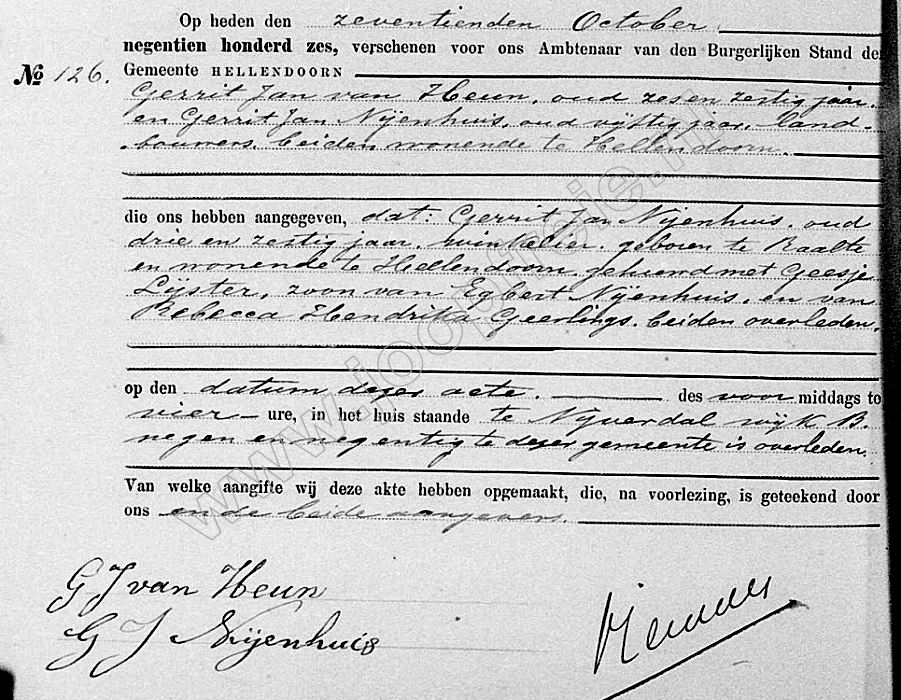 Op heden den zeventienden October
negentien honderd zes, verschenen voor ons Ambtenaar van den Burgerlijken Stand der
No 126. Gemeente HELLENDOORN
Gerrit Jan van Heun, oud zes en zestig jaar,
en Gerrit Jan Nijenhuis, oud vijftig jaar, land-
bouwers, beiden wonende te Hellendoorn.
die ons hebben aangegeven, dat: Gerrit Jan Nijenhuis, oud
drie en zestig jaar, winkelier, geboren te Raalte
en wonende te Hellendoorn, gehuwd met Geesje
Lijster, zoon van Egbert Nijenhuis, en van
Rebecca Hendrika Geerlings, beiden overleden,
op den datum dezer acte. des voor middags te
vier ure, in het huis staande te Nijverdal wijk B.
negen en negentig te dezer gemeente is overleden.
Van welke aangifte wij deze akte hebben opgemaakt, die, na voorlezing, is geteekend door
ons en de beide aangevers.
G J van Heun
G J Nijenhuis